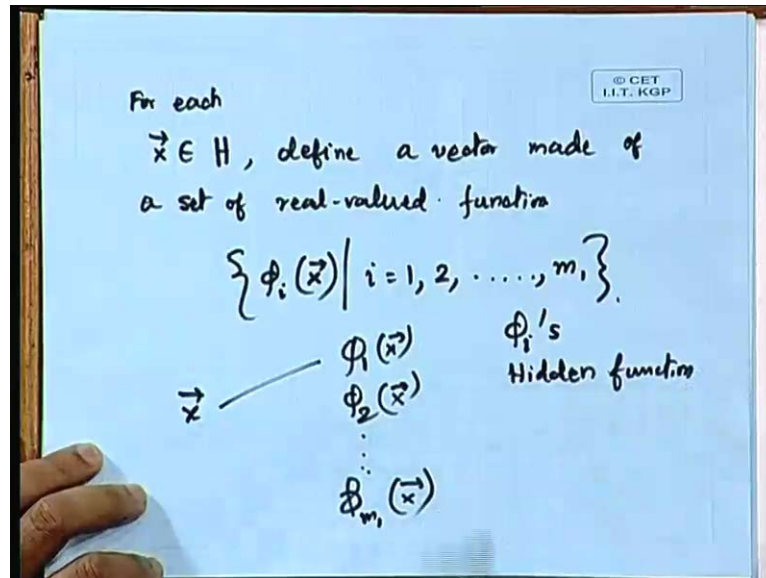 © CET
I.I.T. KGP
For each
x⃗ ∈ H, define a vector made of
a set of real-valued function
{ φᵢ(x⃗) | i = 1, 2, ....., m₁ }.
φ₁(x⃗)
φᵢ's
Hidden function
x⃗
φ₂(x⃗)
⋮
φₘ₁(x⃗)